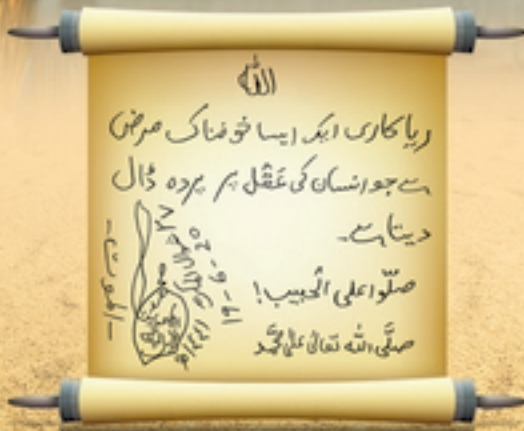 اللہ
ریاکاری ایک ایسا خوفناک مرض
ہے جو انسان کی عَقْل پر پردہ ڈال
دیتا ہے۔
صلُّوا علَی الْحَبِیب!
صلَّی اللہُ تعالٰی علٰی مُحَمَّد
الموت